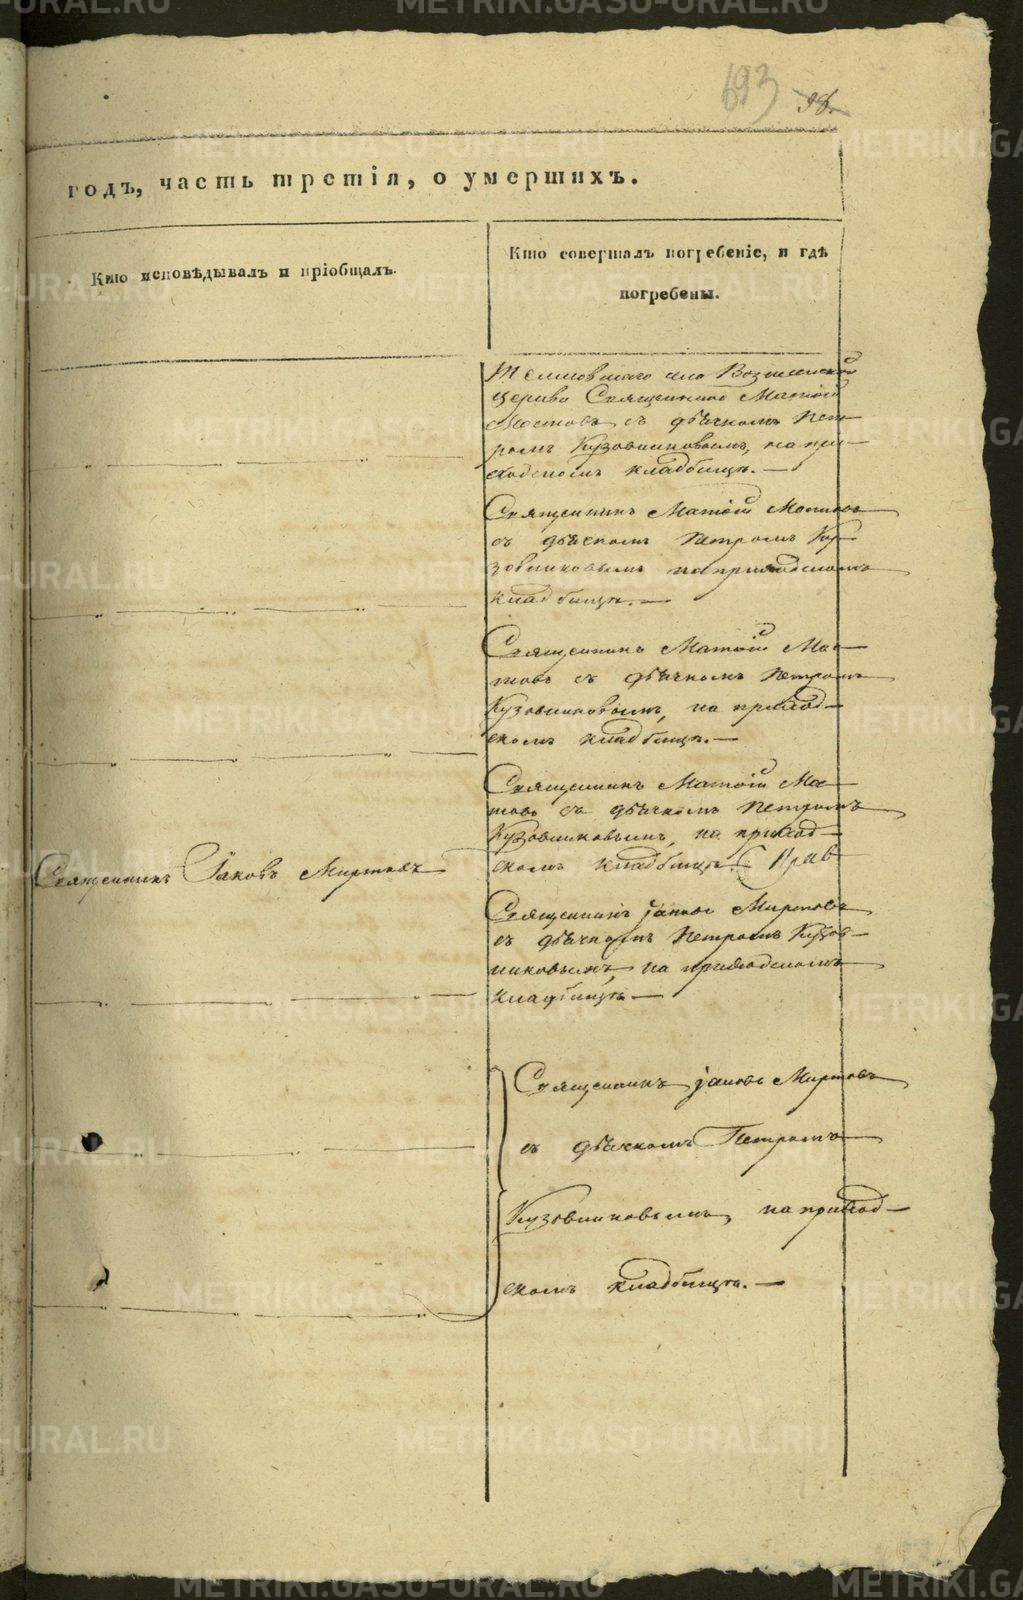 693
98.
годъ, часть третія, о умершихъ.
Кто исповѣдывалъ и пріобщалъ.
Кто совершалъ погребеніе, и гдѣ
погребены.
села Вознесенской
церкви Священникъ Матѳій
съ дьячкомъ Пет-
ромъ Кузовниковымъ, на при-
ходскомъ кладбищѣ.—
Священникъ Матѳій
съ дьячкомъ Петромъ Ку-
зовниковымъ на приходскомъ
кладбищѣ.—
Священникъ Матѳій
съ дьячкомъ Петромъ
Кузовниковымъ, на приход-
скомъ кладбищѣ.—
Священникъ Матѳій
съ дьячкомъ Петромъ
Кузовниковымъ, на приход-
скомъ кладбищѣ.
Священникъ Іаковъ Миртовъ
Священникъ Іаковъ Миртовъ
съ дьячкомъ Петромъ Кузов-
никовымъ, на приходскомъ
кладбищѣ—
Священникъ Іаковъ Миртовъ
съ дьячкомъ Петромъ
Кузовниковымъ, на приход-
скомъ кладбищѣ.—
METRIKI.GASO-URAL.RU